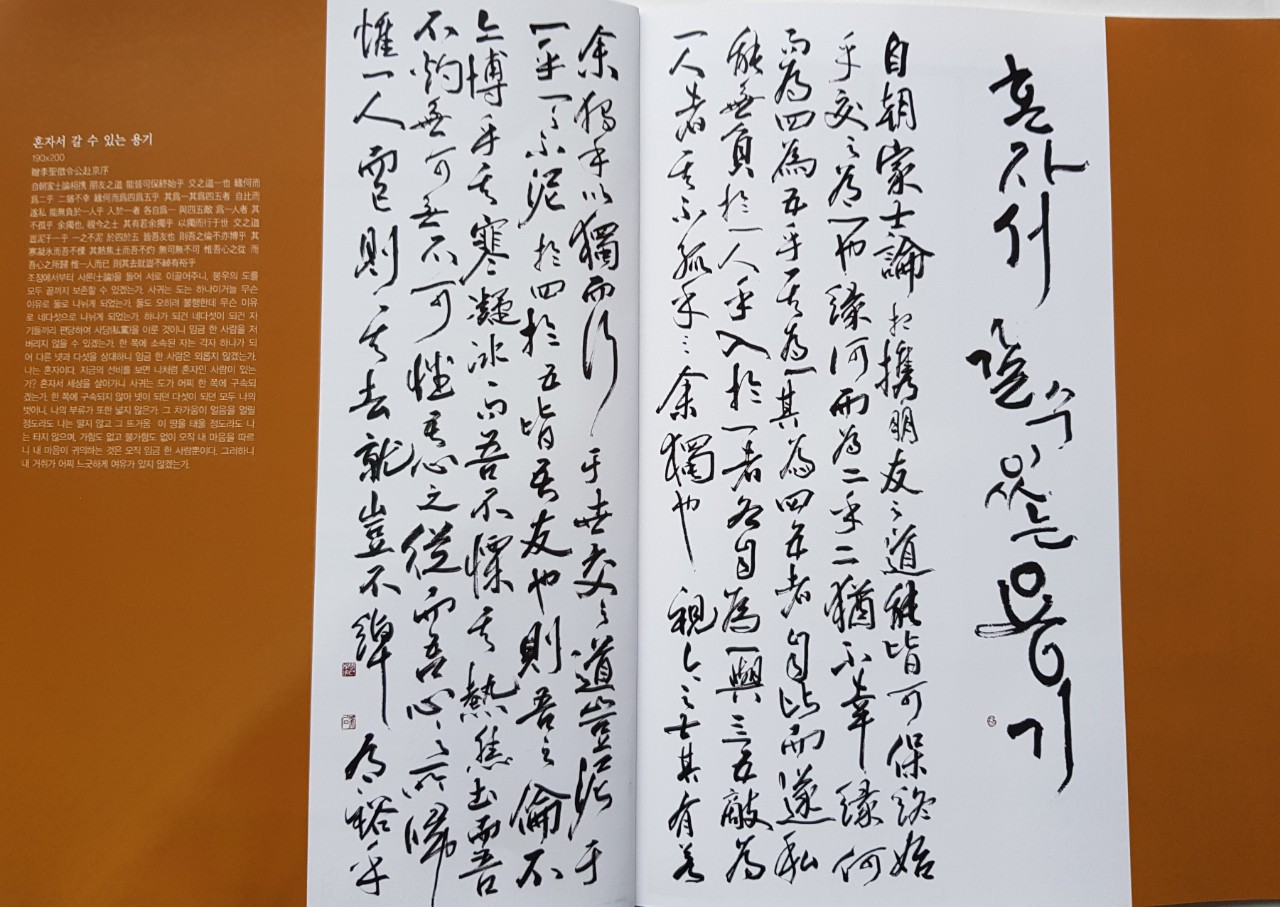 혼자서 갈 수 있는 용기
190x200
贈李聖徵令公赴京序
自朝家士論相携 朋友之道 能皆可保終始乎 交之道一也 緣何而
爲二乎 二猶不幸 緣何而爲四爲五乎 其爲一其爲四五者 自比而
遂私 能無負於一人乎 入於一者 各自爲一 與四五敵 爲一人者 其
不孤乎 余獨也, 視今之士 其有若余獨乎 以獨而行于世 交之道
豈泥于一乎 一之不泥 於四於五 皆吾友也 則吾之倫不亦博乎 其
寒凝氷而吾不慄 其熱焦土而吾不灼 無可無不可 惟吾心之從 而
吾心之所歸 惟一人而已 則其去就豈不綽有裕乎
조정에서부터 사론(士論)을 들어 서로 이끌어주니, 붕우의 도를
모두 끝까지 보존할 수 있겠는가. 사귀는 도는 하나이거늘 무슨
이유로 둘로 나뉘게 되었는가. 둘도 오히려 불행한데 무슨 이유
로 네다섯으로 나뉘게 되었는가. 하나가 되건 네다섯이 되건 자
기들끼리 편당하여 사당(私黨)을 이룬 것이니 임금 한 사람을 저
버리지 않을 수 있겠는가. 한 쪽에 소속된 자는 각자 하나가 되
어 다른 넷과 다섯을 상대하니 임금 한 사람은 외롭지 않겠는가.
나는 혼자이다. 지금의 선비를 보면 나처럼 혼자인 사람이 있는
가? 혼자서 세상을 살아가니 사귀는 도가 어찌 한 쪽에 구속되
겠는가. 한 쪽에 구속되지 않아 넷이 되던 다섯이 되던 모두 나의
벗이니, 나의 부류가 또한 넓지 않은가. 그 차가움이 얼음을 얼릴
정도라도 나는 떨지 않고 그 뜨거움이 땅을 태울 정도라도 나
는 타지 않으며, 가함도 없고 불가함도 없이 오직 내 마음을 따르
니 내 마음이 귀의하는 것은 오직 임금 한 사람뿐이다. 그러하니
내 거취가 어찌 느긋하게 여유가 있지 않겠는가.
혼자서 갈 수 있는 용기
自朝家士論相携朋友之道能皆可保終始
乎交之為一也緣何而為二乎二猶不幸緣何
而為四為五乎其為一其為四五者自比而遂私
能無負於一人乎入於一者各自為一與三五敵為
一人者其不孤乎余獨也視今之士其有若
余獨乎以獨而行于世交之道豈泥于
一乎一之不泥於四於五皆吾友也則吾之倫不
亦博乎其寒凝冰而吾不慄其熱焦土而吾
不灼無可無不可惟吾心之從而吾心之所歸
惟一人而已則其去就豈不綽有裕乎